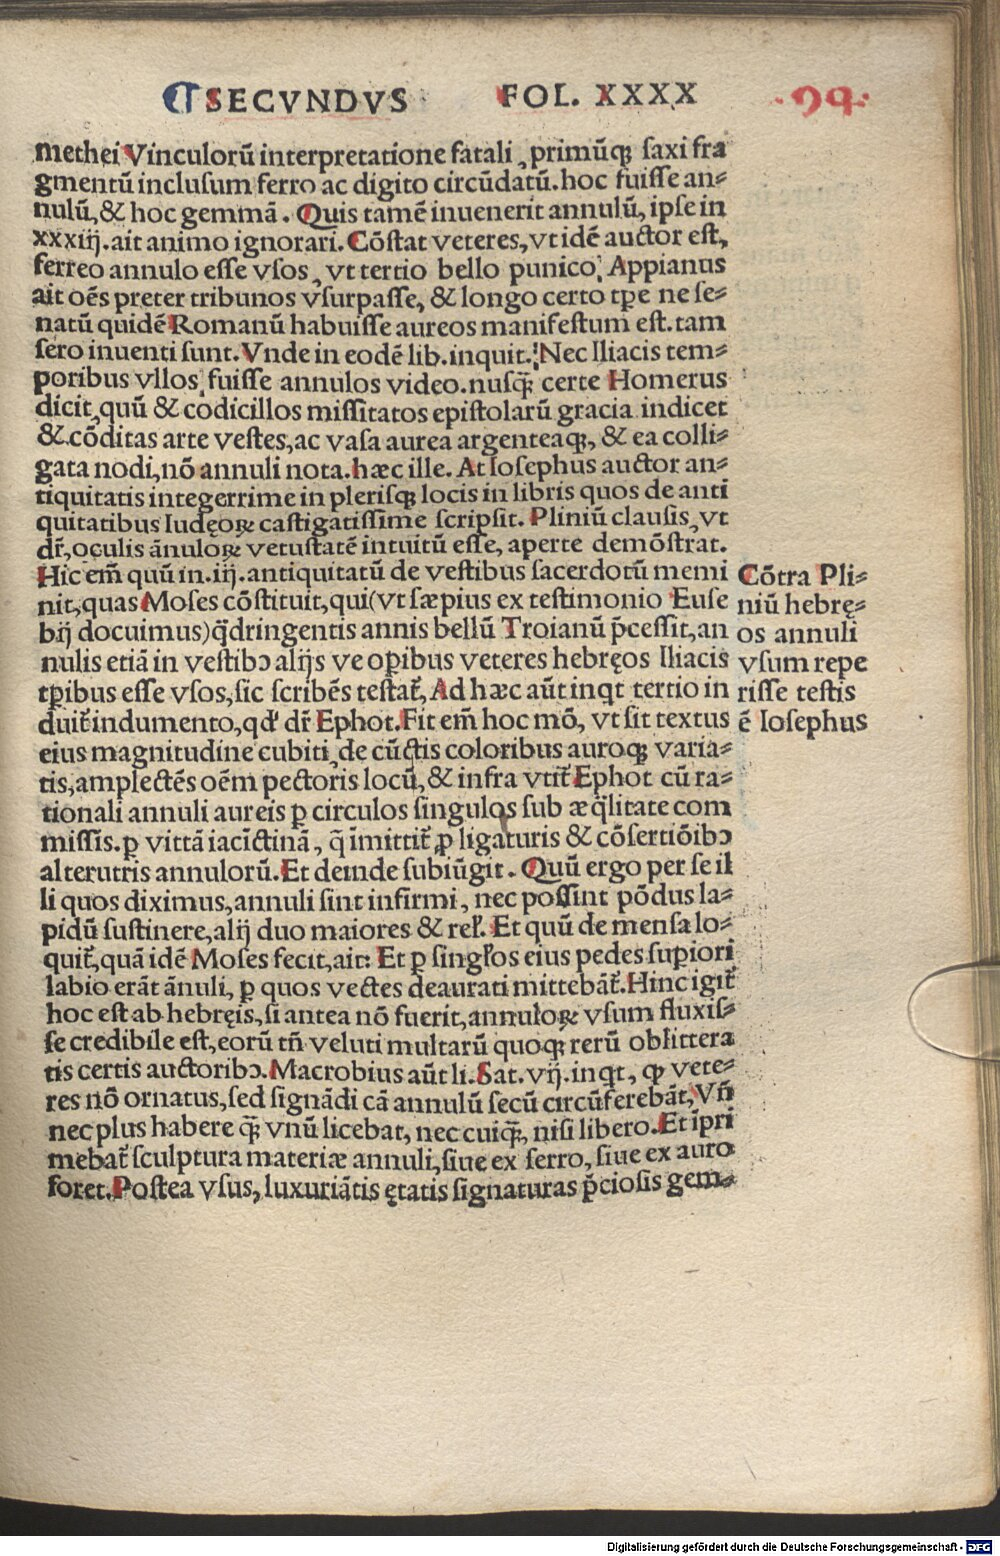 ¶ SECVNDVS FOL. XXXX 99
methei Vinculorū interpretatione fatali, primūq; saxi fra
gmentū inclusum ferro ac digito circūdatū. hoc fuisse an⸗
nulū, & hoc gemmā. Quis tamē inuenerit annulū, ipse in
xxxiij. ait animo ignorari. Cōstat veteres, vt idē auctor est,
ferreo annulo esse vsos, vt tertio bello punico, Appianus
ait oēs preter tribunos vsurpasse, & longo certo tp̄e ne se⸗
natū quidē Romanū habuisse aureos manifestum est. tam
sero inuenti sunt. Vnde in eodē lib. inquit. Nec Iliacis tem⸗
poribus vllos fuisse annulos video. nusq̄ certe Homerus
dicit, quū & codicillos missitatos epistolarū gracia indicet
&.cōditas arte vestes, ac vasa aurea argenteaq;, & ea colli⸗
gata nodi, nō annuli nota. hæc ille. At Iosephus auctor an⸗
tiquitatis integerrime in plerisq; locis in libris quos de anti
quitatibus Iudęoꝝ castigatissime scripsit. Pliniū clausis, vt
dr̄, oculis ānuloꝝ vetustatē intuitū esse, aperte demōstrat.
Hic em̄ quū in .iij. antiquitatū de vestibus sacerdotū memi
nit, quas Moses cōstituit, qui (vt sæpius ex testimonio Euse
bij docuimus) q̄dringentis annis bellū Troianū p̄cessit, an
nulis etiā in vestibꝰ alijs ve oꝑibus veteres hebręos Iliacis
tꝑibus esse vsos, sic scribēs testat̄, Ad hæc aūt inqt tertio in
duit̄ indumento, qd' dr̄ Ephot. Fit em̄ hoc mō, vt sit textus
eius magnitudine cubiti, de cūctis coloribus auroq; varia⸗
tis, amplectēs oēm pectoris locū, & infra vtit̄ Ephot cū ra⸗
tionali annuli aureis ꝑ circulos singulos sub æq̄litate com
missis. ꝑ vittā iacīctinā, q̄ īmittit̄ ꝓ ligaturis & cōsertiōibꝰ
alterutris annulorū. Et deinde subiūgit. Quū ergo per se il
li quos diximus, annuli sint infirmi, nec possint pōdus la⸗
pidū sustinere, alij duo maiores & rel'. Et quū de mensa lo⸗
quit̄, quā idē Moses fecit, ait: Et ꝑ singl'os eius pedes suꝑiori
labio erāt ānuli, ꝑ quos vectes deaurati mittebāt̄. Hinc igit̄
hoc est ab hebręis, si antea nō fuerit, annuloꝝ vsum fluxis⸗
se credibile est, eorū tn̄ veluti multarū quoq; rerū oblittera
tis certis auctoribꝰ. Macrobius aūt li. Sat. vij. inqt, ꝙ vete⸗
res nō ornatus, sed signādi cā annulū secū circūferebāt, Vn̄
nec plus habere q̄ vnū licebat, nec cuiq̄, nisi libero. Et īpri
mebat̄ sculptura materiæ annuli, siue ex ferro, siue ex auro
foret. Postea vsus, luxuriātis ętatis signaturas p̄ciosis gem⸗
Cōtra Pli⸗
niū hebrę⸗
os annuli
vsum repe
risse testis
ē Iosephus
Digitalisierung gefördert durch die Deutsche Forschungsgemeinschaft - DFG